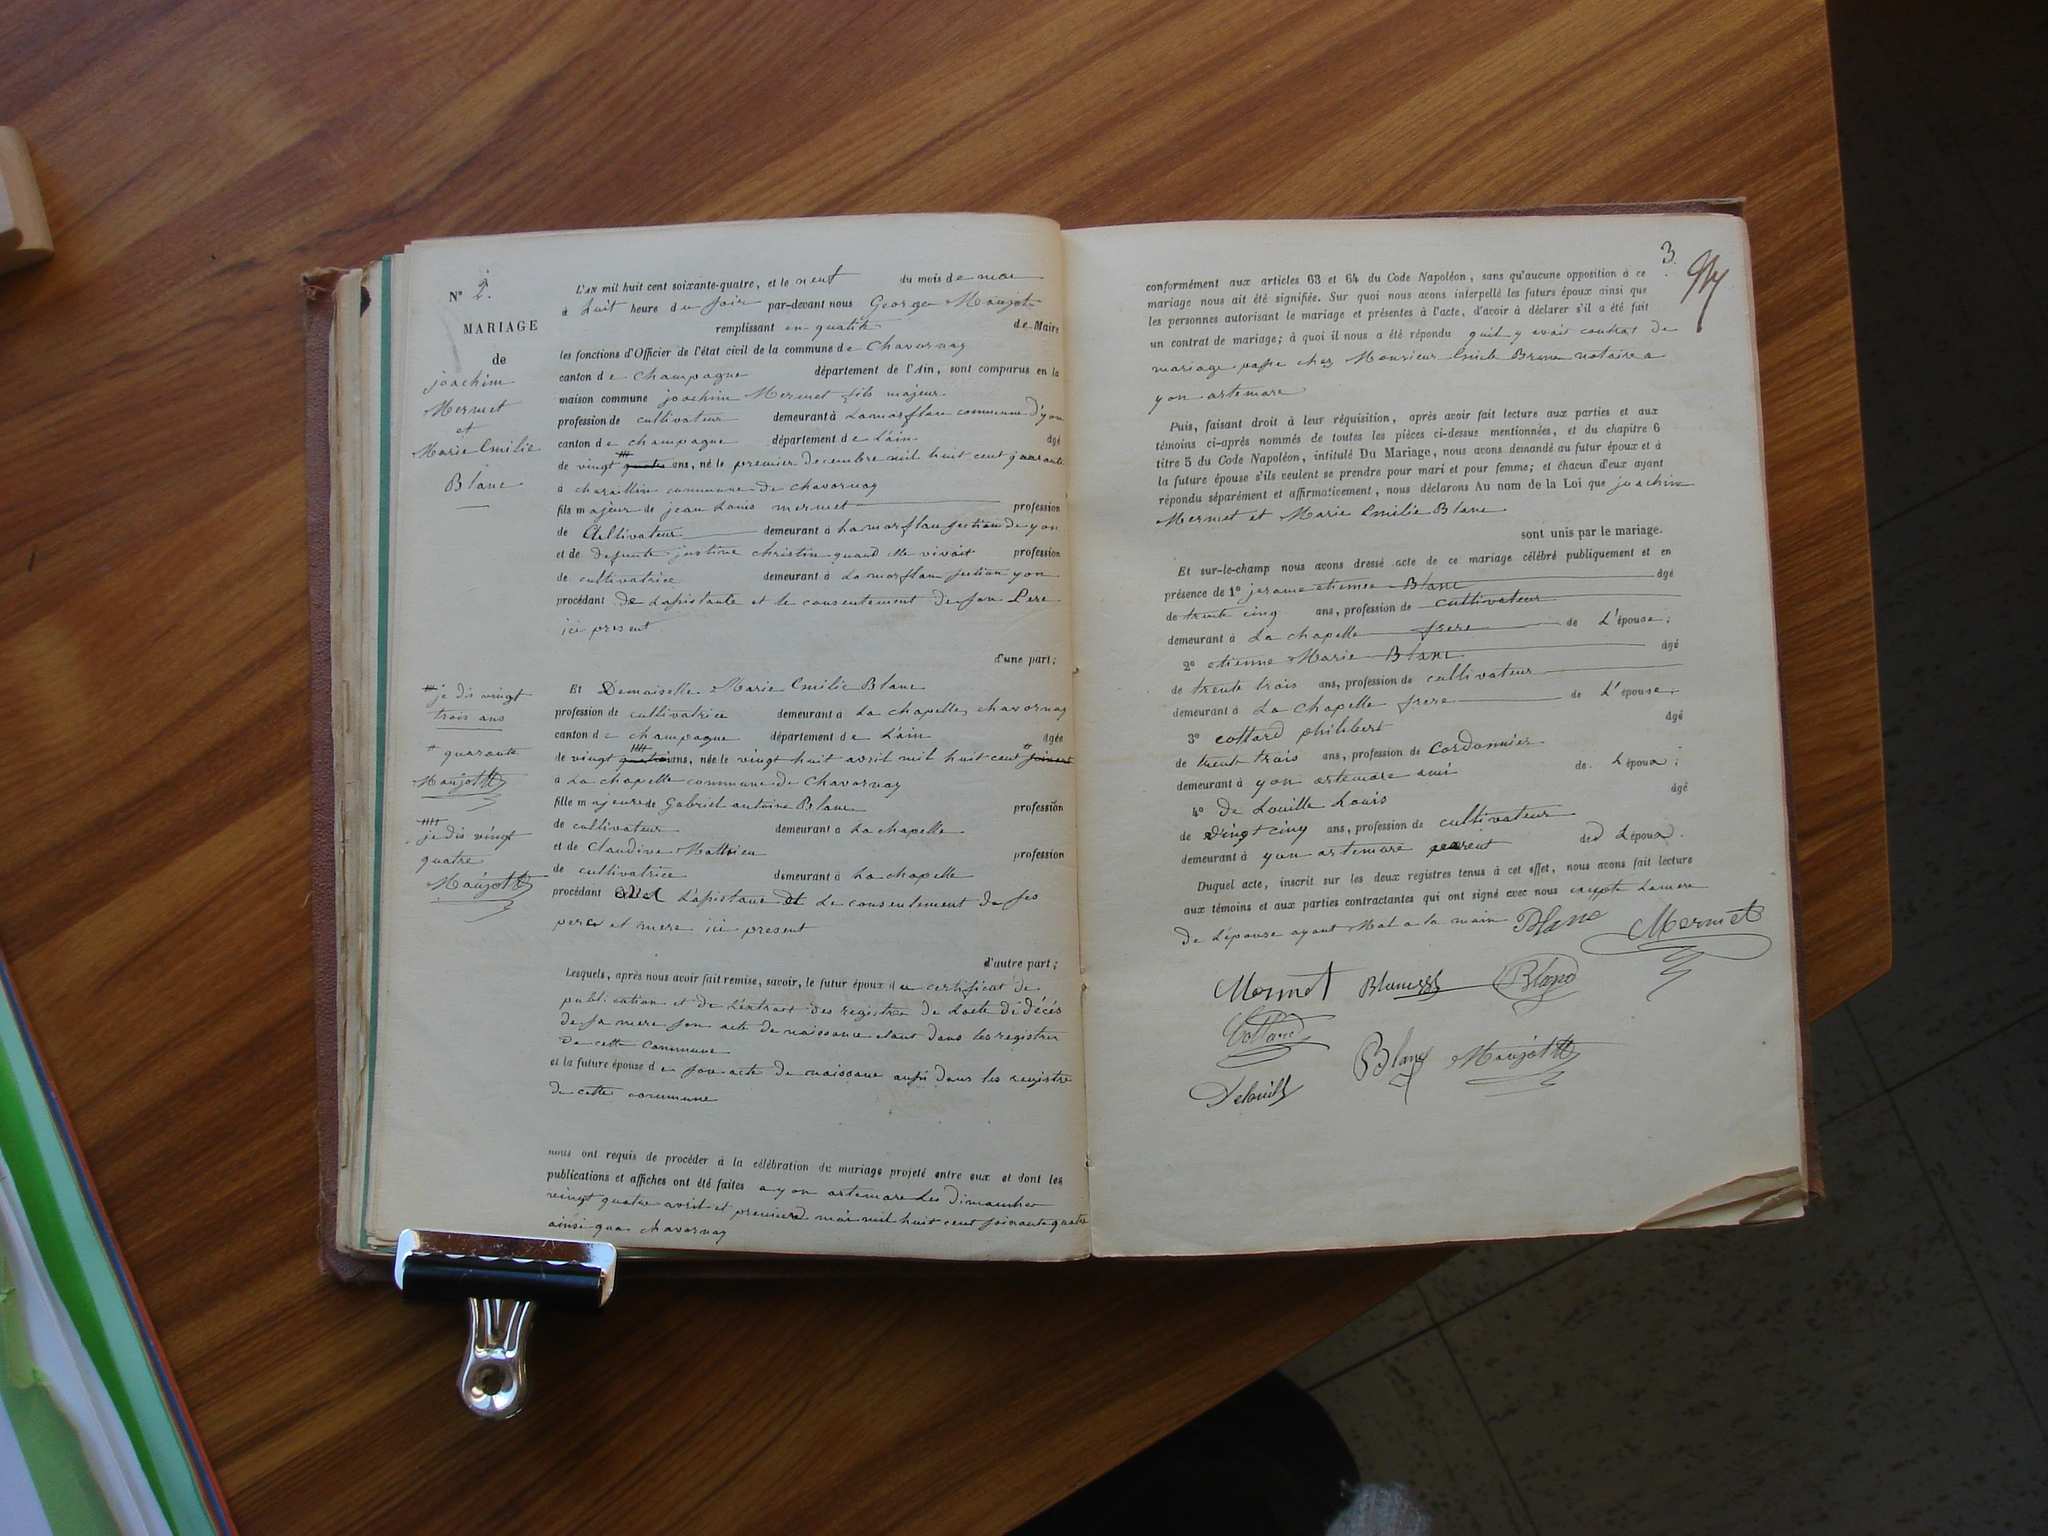 N° 2.
MARIAGE
de
joachim
Mermet
et
Marie Emilie
Blanc
L'AN mil huit cent soixante-quatre, et le neuf du mois de mai
à huit heure du soir par-devant nous George Maujot
remplissant en qualité de Maire
les fonctions d'Officier de l'état civil de la commune de Chavornay
canton de Champagne département de l'Ain, sont comparus en la
maison commune joachim Mermet fils majeur
profession de cultivateur demeurant à Lamorflan commune d'yon
canton de champagne département de L'ain âgé
de vingt quatre ans, né le premier decembre mil huit cent quarante
a charillin commune de chavornay
fils majeur de jean Louis mermet profession
de Cultivateur demeurant à Lamorflan section de yon
et de defunte justine christin quand elle vivait profession
de cultivatrice demeurant à Lamorflan section yon
procédant de Lapistante et le consentement de son Pere
ici present
d'une part;
je dis vingt
trois ans
quarante
Maujot
je dis vingt
quatre
Maujot
Et Demoiselle Marie Emilie Blanc
profession de cultivatrice demeurant à La chapelle, chavornay
canton de champagne département de L'ain âgée
de vingt ans, née le vingt huit avril mil huit cent
a La chapelle commune de Chavornay
fille majeure de Gabriel antoine Blanc profession
de cultivateur demeurant à La chapelle
et de Claudine Mathieu profession
de cultivatrice demeurant à La chapelle
procédant L'apistance et Le consentement de ses
pere et mere ici present
d'autre part;
Lesquels, après nous avoir fait remise, savoir, le futur époux du certificat de
publication et de L'extrait des registre de Lacte de décés
de sa mere son acte de naissance etant dans les registre
de cette commune
et la future épouse de son acte de naissance aussi dans les registre
de cette commune
nous ont requis de procéder à la célébration du mariage projeté entre eux et dont les
publications et affiches ont été faites a yon artemare Les dimanches
vingt quatre avril et premier mai mil huit cent soixante quatre
ainsi que chavornay
3.
conformément aux articles 63 et 64 du Code Napoléon, sans qu'aucune opposition à ce
mariage nous ait été signifiée. Sur quoi nous avons interpellé les futurs époux ainsi que
les personnes autorisant le mariage et présentes à l'acte, d'avoir à déclarer s'il a été fait
un contrat de mariage; à quoi il nous a été répondu quil y avait contrat de
mariage passe chez Monsieur Emile Brun notaire a
yon artemare
Puis, faisant droit à leur réquisition, après avoir fait lecture aux parties et aux
témoins ci-après nommés de toutes les pièces ci-dessus mentionnées, et du chapitre 6
titre 5 du Code Napoléon, intitulé Du Mariage, nous avons demandé au futur époux et à
la future épouse s'ils veulent se prendre pour mari et pour femme; et chacun d'eux ayant
répondu séparément et affirmativement, nous déclarons Au nom de la Loi que joachim
Mermet et Marie Emilie Blanc
sont unis par le mariage.
Et sur-le-champ nous avons dressé acte de ce mariage célébré publiquement et en
présence de 1° jerome etienne Blanc âgé
de trente cinq ans, profession de cultivateur
demeurant à La chapelle frere de L'épouse;
2° etienne Marie Blanc âgé
de trente trois ans, profession de cultivateur
demeurant à La Chapelle frere de L'épouse.
3° cottard philibert âgé
de trente trois ans, profession de cordonnier
demeurant à yon artemare ami de L'époux;
4° de Louille Louis âgé
de vingt cinq ans, profession de cultivateur
demeurant à yon artemare parent de L'époux.
Duquel acte, inscrit sur les deux registres tenus à cet effet, nous avons fait lecture
aux témoins et aux parties contractantes qui ont signé avec nous excepte Lamere
de L'épouse ayant Mal a la main Blanc Mermet
Mermet Blanc Blanc
Cottard
Blanc Maujot
Delouille